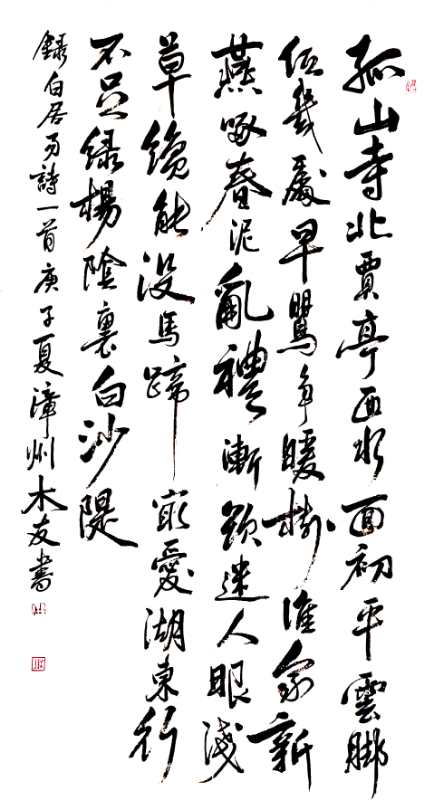 孤山寺北賈亭西水面初平雲脚
低幾處早鶯爭暖樹誰家新
燕啄春泥亂禮漸欲迷人眼淺
草纔能沒馬蹄最愛湖東行
不足綠楊陰裏白沙隄
錄白居易詩一首庚子夏漳州木友書